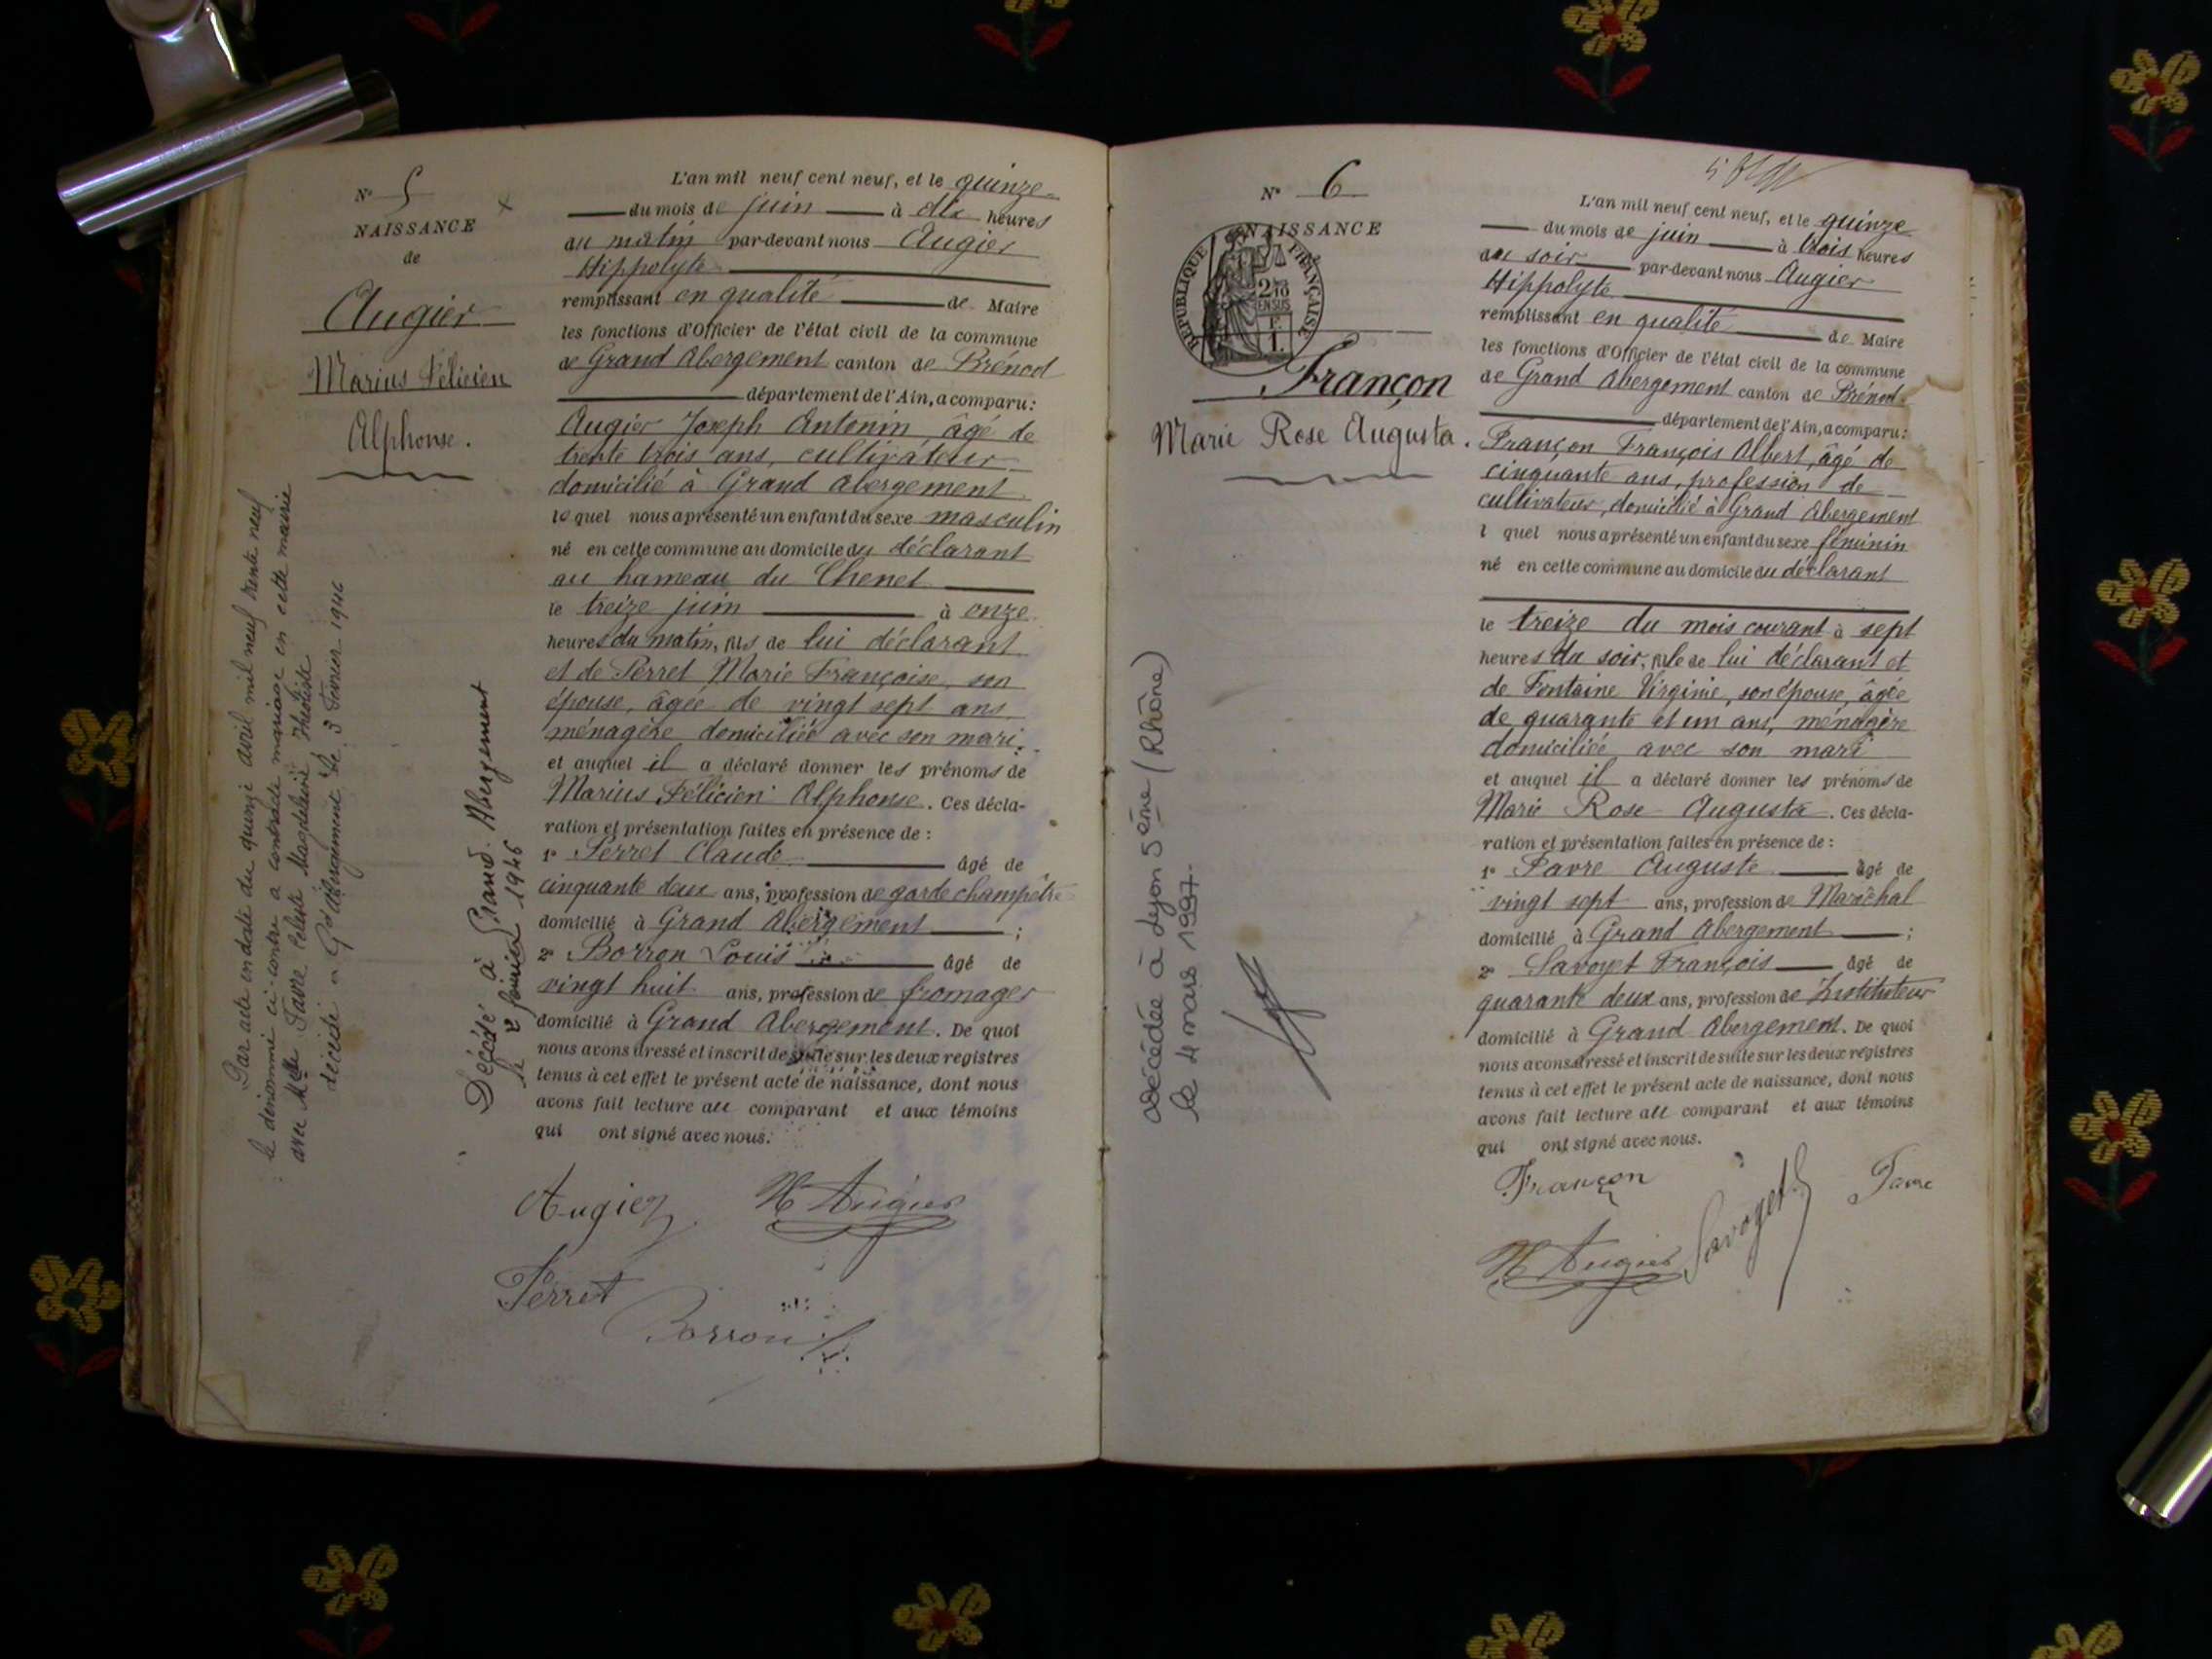 N° 5
NAISSANCE
de
Augier
Marius Félicien
Alphonse.
Par acte en date du quinze avril mil neuf trente neuf
le dénommé ci-contre a contracté mariage en cette mairie
avec Mlle Favre Céleste Magdeleine Théotiste
décédé à Gd Abergement le 3 février 1946
Décédé à Grand. Abergement
le 2 février 1946
L'an mil neuf cent neuf, et le quinze
du mois de juin à dix heures
du matin par-devant nous Augier
Hippolyte
remplissant en qualité de Maire
les fonctions d'Officier de l'état civil de la commune
de Grand Abergement canton de Brénod
département de l'Ain, a comparu:
Augier Joseph Antonin âgé de
trente trois ans, cultivateur
domicilié à Grand Abergement
lequel nous a présenté un enfant du sexe masculin
né en cette commune au domicile du déclarant
au hameau du Chenet
le treize juin à onze
heures du matin, fils de lui déclarant
et de Perret Marie Françoise, son
épouse, âgée de vingt sept ans,
ménagère domiciliée avec son mari.
et auquel il a déclaré donner les prénoms de
Marius Félicien Alphonse. Ces décla-
ration et présentation faites en présence de :
1° Perret Claude âgé de
cinquante deux ans, profession de garde champêtre
domicilié à Grand Abergement ;
2° Borron Louis âgé de
vingt huit ans, profession de fromager
domicilié à Grand Abergement. De quoi
nous avons dressé et inscrit de suite sur les deux registres
tenus à cet effet le présent acte de naissance, dont nous
avons fait lecture au comparant et aux témoins
qui ont signé avec nous.
Augier H Augier
Perret
Borron
N° 6
NAISSANCE
RÉPUBLIQUE FRANÇAISE
2/10 EN SUS
F. 1.
Françon
Marie Rose Augusta.
décédée à Lyon 5ème (Rhône)
le 4 mars 1997.
L'an mil neuf cent neuf, et le quinze
du mois de juin à trois heures
du soir par-devant nous Augier
Hippolyte
remplissant en qualité de Maire
les fonctions d'Officier de l'état civil de la commune
de Grand Abergement canton de Brénod
département de l'Ain, a comparu:
Françon François Albert, âgé de
cinquante ans, profession de
cultivateur, domicilié à Grand Abergement
l quel nous a présenté un enfant du sexe féminin
né en cette commune au domicile du déclarant
le treize du mois courant à sept
heures du soir, fille de lui déclarant et
de Fontaine Virginie, son épouse, âgée
de quarante et un ans, ménagère
domiciliée avec son mari
et auquel il a déclaré donner les prénoms de
Marie Rose Augusta. Ces décla-
ration et présentation faites en présence de :
1° Favre Auguste âgé de
vingt sept ans, profession de Maréchal
domicilié à Grand Abergement ;
2° Savoyet François âgé de
quarante deux ans, profession de Instituteur
domicilié à Grand Abergement. De quoi
nous avons dressé et inscrit de suite sur les deux registres
tenus à cet effet le présent acte de naissance, dont nous
avons fait lecture au comparant et aux témoins
qui ont signé avec nous.
Françon Savoyet Favre
H Augier